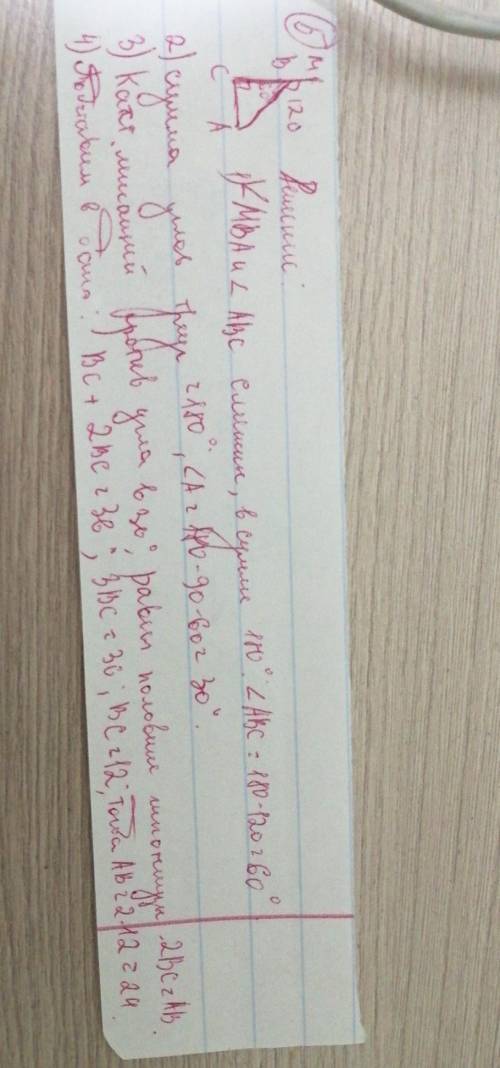 6) M
B 120 Решение:
C A 1) < MBA и < ABC смежные, в сумме 180°. < ABC = 180-120=60°
2) сумма углов треуг =180°, < A = 180-90-60=30°.
3) Катет лежащий против угла в 30°, равен половине гипотенузы. 2BC=AB.
4) Подставим в BC + 2BC = 36; 3BC=36; BC=12; тогда AB=2·12=24.